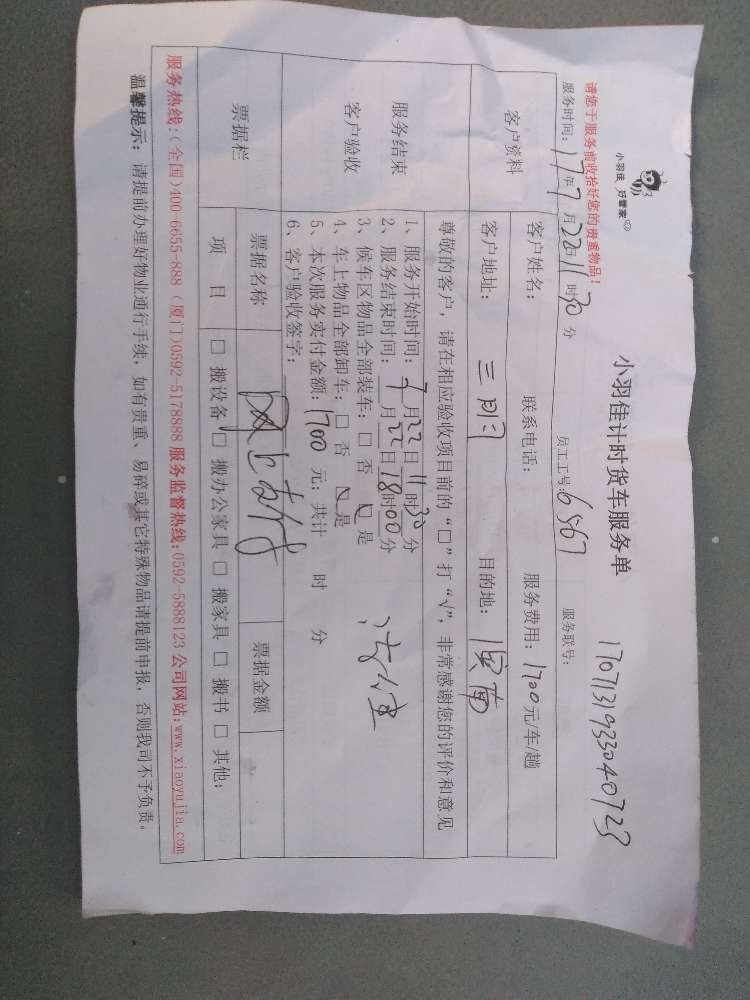 小羽佳 好管家
小羽佳计时货车服务单
1707131933040723
请您于服务前收拾好您的贵重物品!
服务时间: 17年7月22日11时30分 员工工号6567 服务联号:
客户资料
客户姓名: 联系电话: 服务费用: 1700元/车/趟
客户地址: 三明 目的地:
尊敬的客户,请在相应验收项目前的“□”打“√”,非常感谢您的评价和意见
服务结束
客户验收
1、服务开始时间: 7月22日11时30分
2、服务结束时间: 7月22日18时00分
3、候车区物品全部装车: □ 否 ☑ 是
4、车上物品全部卸车: □ 否 ☑ 是
5、本次服务实付金额: 1700 元; 共计 时 分
6、客户验收签字:
票据栏
票据名称 网上支付 票据金额
项目 □ 搬设备 □ 搬办公家具 □ 搬家具 □ 搬书 □ 其他:
服务热线:(全国)400-6655-888 (厦门)0592-5178888 服务监督热线:0592-5888123 公司网站:www.xiaoyujia.com
温馨提示: 请提前办理好物业通行手续, 如有贵重、易碎或其它特殊物品请提前申报, 否则我司不予负责。